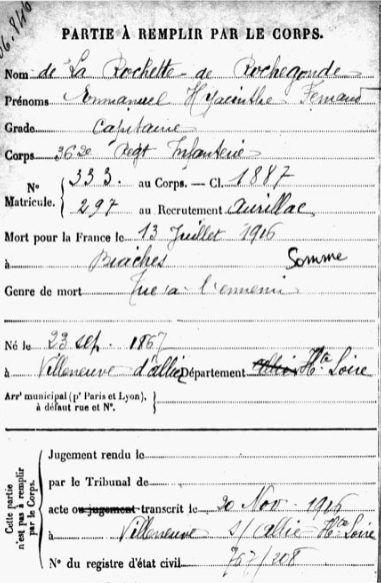 PARTIE À REMPLIR PAR LE CORPS.
Nom de La Rochette de Rochegonde
Prénoms Emmanuel Hyacinthe Fernand
Grade Capitaine
Corps 362e Régt Infanterie
N° Matricule. 333. au Corps. — Cl. 1887
297 au Recrutement Aurillac
Mort pour la France le 13 Juillet 1916
à Biaches Somme
Genre de mort Tué à l'ennemi
Né le 23 sep. 1867
à Villeneuve d'allier Département Allier Hte Loire
Arrt municipal (pr Paris et Lyon), à défaut rue et N°.
Cette partie n'est pas à remplir par le Corps.
Jugement rendu le
par le Tribunal de
acte ou jugement transcrit le 20 Nov. 1916
à Villeneuve s/ Allie Hte Loire
N° du registre d'état civil 757/208